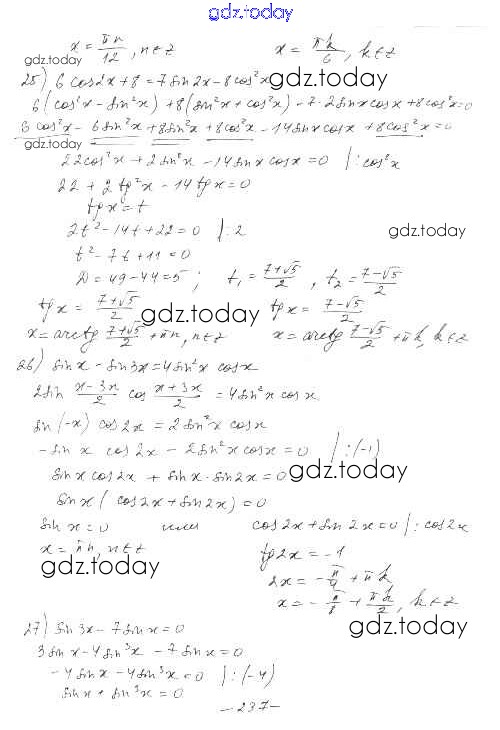 gdz.today
x = πn/12, n∈z    x = πk/6, k∈z
gdz.today
25) 6 cos2x + 8 = 7 sin2x - 8cos²x gdz.today
6(cos²x - sin²x) + 8(sin²x + cos²x) - 7·2sinxcosx + 8cos²x = 0
6cos²x - 6sin²x + 8sin²x + 8cos²x - 14sinxcosx + 8cos²x = 0
gdz.today
22cos²x + 2sin²x - 14sinxcosx = 0 |:cos²x
22 + 2tg²x - 14tgx = 0
tgx = t
2t² - 14t + 22 = 0 |:2    gdz.today
t² - 7t + 11 = 0
D = 49 - 44 = 5; t₁ = (7+√5)/2, t₂ = (7-√5)/2
tgx = (7+√5)/2 gdz.today tgx = (7-√5)/2
x = arctg (7+√5)/2 + πn, n∈z    x = arctg (7-√5)/2 + πk, k∈z
26) sinx - sin3x = 4sin²x cosx
2sin (x-3x)/2 cos (x+3x)/2 = 4sin²x cosx
sin(-x) cos2x = 2sin²x cosx
-sinx cos2x - 2sin²x cosx = 0 |:(-1)
sinx cos2x + sinx·sin2x = 0 gdz.today
sinx(cos2x + sin2x) = 0
sinx = 0    или    cos2x + sin2x = 0 |:cos2x
x = πn, n∈z    tg2x = -1
gdz.today    2x = -π/4 + πk
x = -π/8 + πk/2, k∈z
27) sin3x - 7sinx = 0    gdz.today
3sinx - 4sin³x - 7sinx = 0
-4sinx - 4sin³x = 0 |:(-4)
sinx + sin³x = 0
-237-